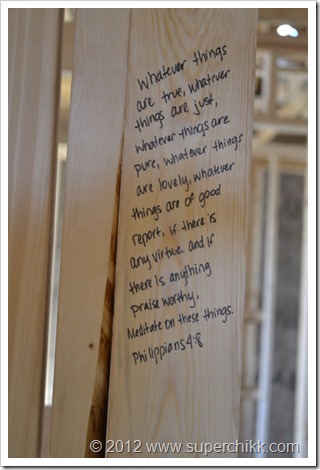 Whatever things
are true, whatever
things are just,
whatever things are
pure, whatever things
are lovely, whatever
things are of good
report, if there is
any virtue, and if
there is anything
praise worthy,
Meditate on these things.
Philippians 4:8
© 2012 www.superchikk.com